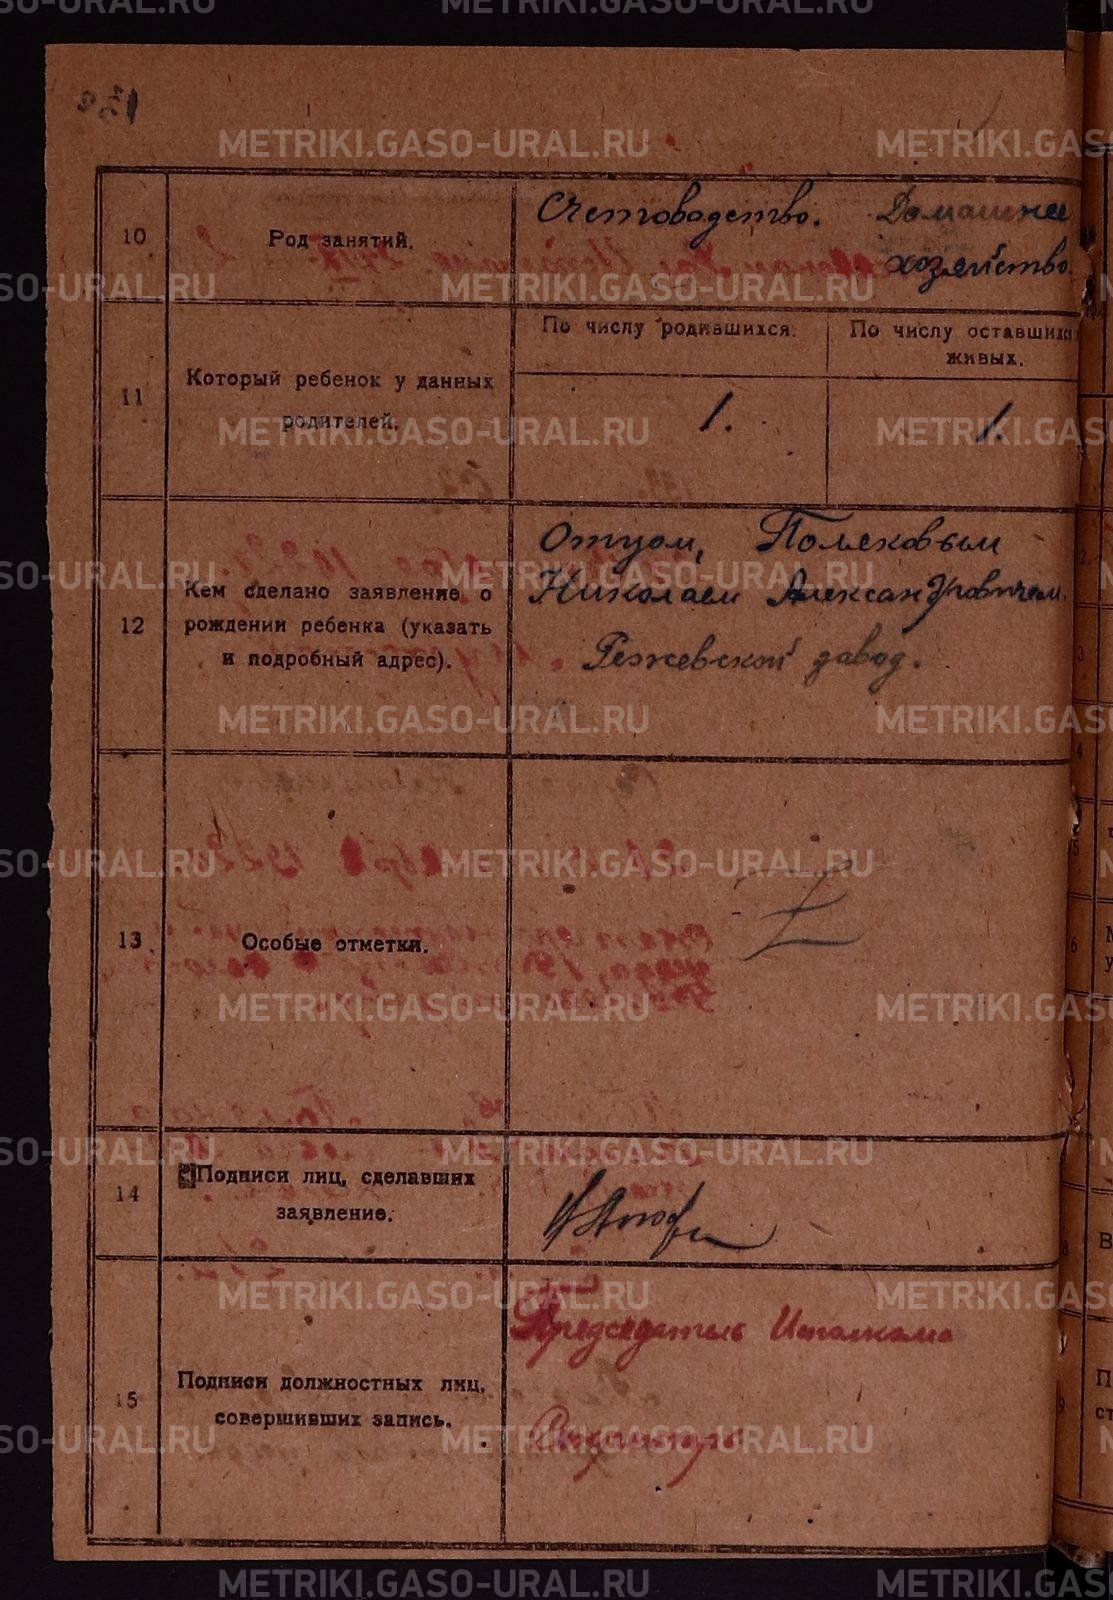 METRIKI.GASO-URAL.RU
10
Род занятий.
Счетоводство. Домашнее
хозяйство.
11
Который ребенок у данных
родителей.
По числу родившихся.
По числу оставшихся
живых.
1.
1.
12
Кем сделано заявление о
рождении ребенка (указать
и подробный адрес).
Отцом, Поляковым
Николаем Александровичем.
Режевской завод.
13
Особые отметки.
Z
14
Подписи лиц, сделавших
заявление.
15
Подписи должностных лиц,
совершивших запись.
Председатель Исполкома
Секретарь